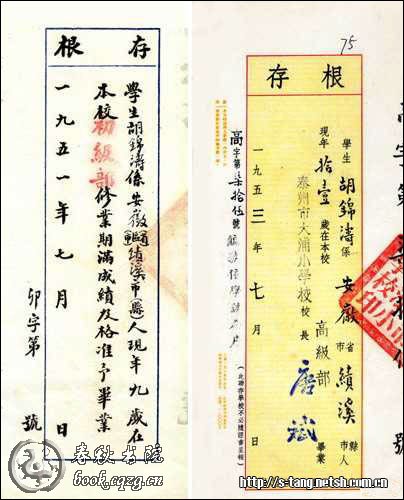 存根
學生胡錦濤係安徽績溪市縣人現年九歲在
本校初級部修業期滿成績及格准予畢業
一九五一年七月 日
卯字第 號
75
存根
學生胡錦濤係安徽省市績溪縣市人
現年拾壹歲在本校高級部畢業
泰州市大浦小學校校長唐斌
一九五三年七月 日
高字第柒拾伍號
春秋书院
book.cqzg.cn
http://s-tang.netsh.com.cn